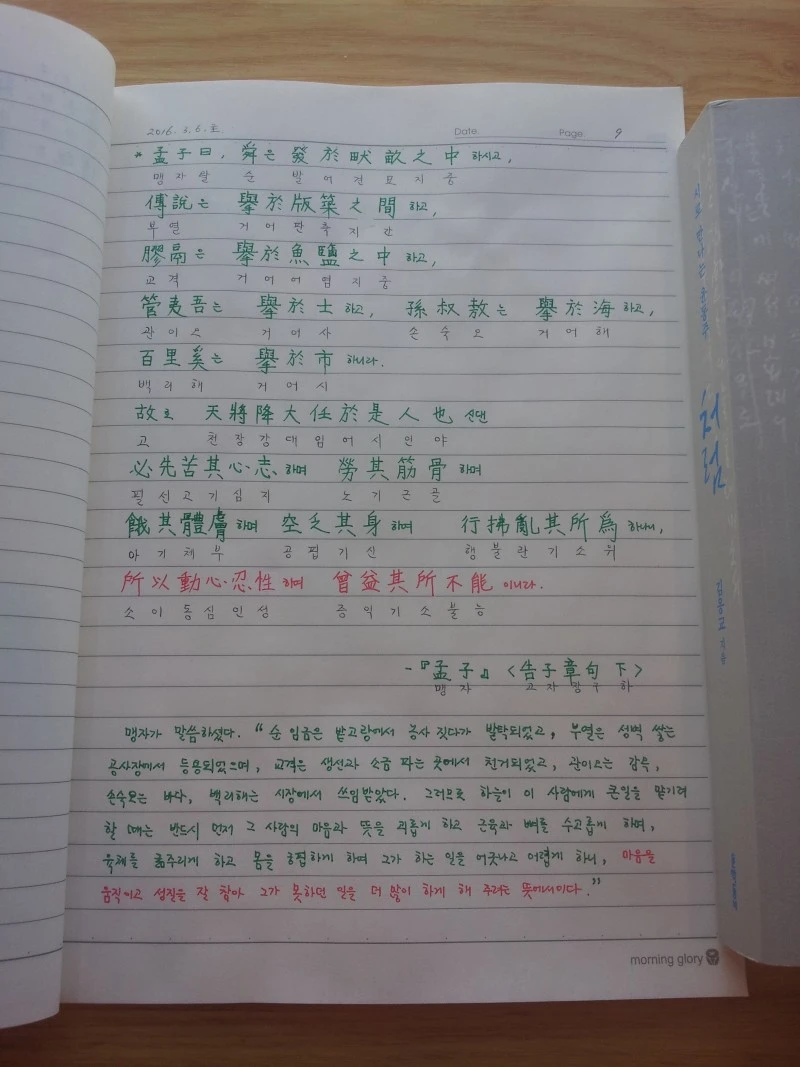 2016. 3. 6. 토
Date.
Page 9
* 孟子曰, 舜은 發於畎畝之中 하시고,
맹자왈 순 발어견묘지중
傅說은 擧於版築之間 하고,
부열 거어판축지간
膠鬲은 擧於魚鹽之中 하고,
교격 거어어염지중
管夷吾는 擧於士 하고, 孫叔敖는 擧於海 하고,
관이오 거어사 손숙오 거어해
百里奚는 擧於市 하니라.
백리해 거어시
故로 天將降大任於是人也 신댄
고 천장강대임어시인야
必先苦其心志 하며 勞其筋骨 하며
필선고기심지 노기근골
餓其體膚 하며 空乏其身 하며 行拂亂其所爲 하나니,
아기체부 공핍기신 행불란기소위
所以動心忍性 하며 曾益其所不能 이니라.
소이동심인성 증익기소불능
-『孟子』 <告子章句 下>
맹자 고자장구하
맹자가 말씀하셨다. "순 임금은 밭고랑에서 농사 짓다가 발탁되었고, 부열은 성벽 쌓는
공사장에서 등용되었으며, 교격은 생선과 소금 파는 곳에서 천거되었고, 관이오는 감옥,
손숙오는 바다, 백리해는 시장에서 쓰임받았다. 그러므로 하늘이 이 사람에게 큰일을 맡기려
할 때는 반드시 먼저 그 사람의 마음과 뜻을 괴롭게 하고 근육과 뼈를 수고롭게 하며,
육체를 굶주리게 하고 몸을 궁핍하게 하며 그가 하는 일을 어긋나고 어렵게 하니, 마음을
움직이고 성질을 잘 참아 그가 못하던 일을 더 많이 하게 해 주려는 뜻에서이다."
morning glory
처럼
김응교 지음